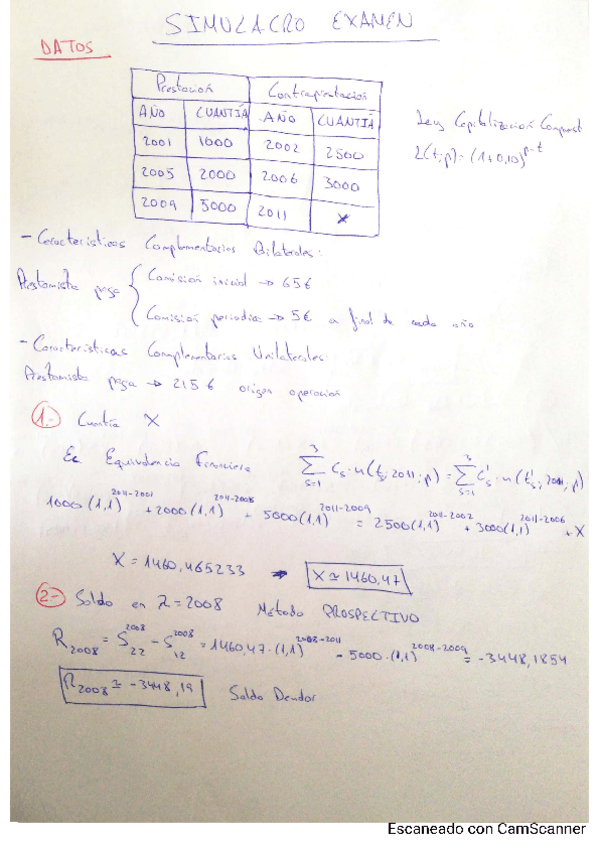 SIMULACRO EXAMEN
DATOS
Prestación Contraprestación
AÑO CUANTÍA AÑO CUANTÍA
2001 1000 2002 2500
2005 2000 2006 3000
2009 5000 2011 X
Ley Capitalización Compuest
L(t;p) = (1+0,10)^p-t
- Características Complementarias Bilaterales:
Prestamista paga { Comisión inicial → 65€
Comisión periodica → 5€ a final de cada año
- Características Complementarias Unilaterales:
Prestamista paga → 215€ origen operación
1.- Cuantía X
Ec Equivalencia Financiera ∑ s=1 3 Cs·u(ts;2011;p) = ∑ s=1 3 C's·u(t's;2011;p)
1000(1,1)^2011-2001 + 2000(1,1)^2011-2005 + 5000(1,1)^2011-2009 = 2500(1,1)^2011-2002 + 3000(1,1)^2011-2006 + X
X = 1460,465233 → X ≃ 1460,47
2.- Saldo en τ = 2008 Método PROSPECTIVO
R2008 = S22^2008 - S12^2008 = 1460,47·(1,1)^2008-2011 - 5000·(1,1)^2008-2009 = -3448,1854
R2008 ≃ -3448,19 Saldo Deudor
Escaneado con CamScanner